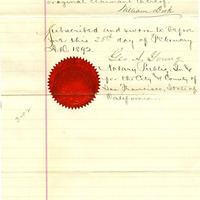 original claimant thereof.
William
Subscribed and sworn to before
me this 25th day of February
A.D. 1892.
Geo. T. Young
Notary Public, in &
for the City & County of
San Francisco, State of
California.